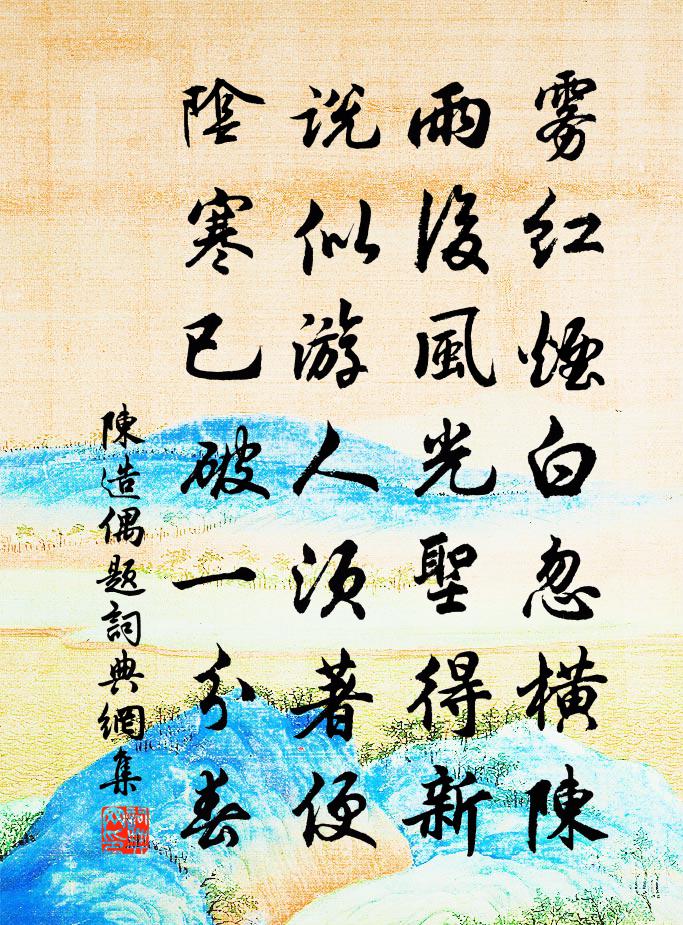 雾紅煙白忽橫陳
雨後風光聖得新
説似游人須著便
陰寒已破一分春
陳造偶題詞典網集